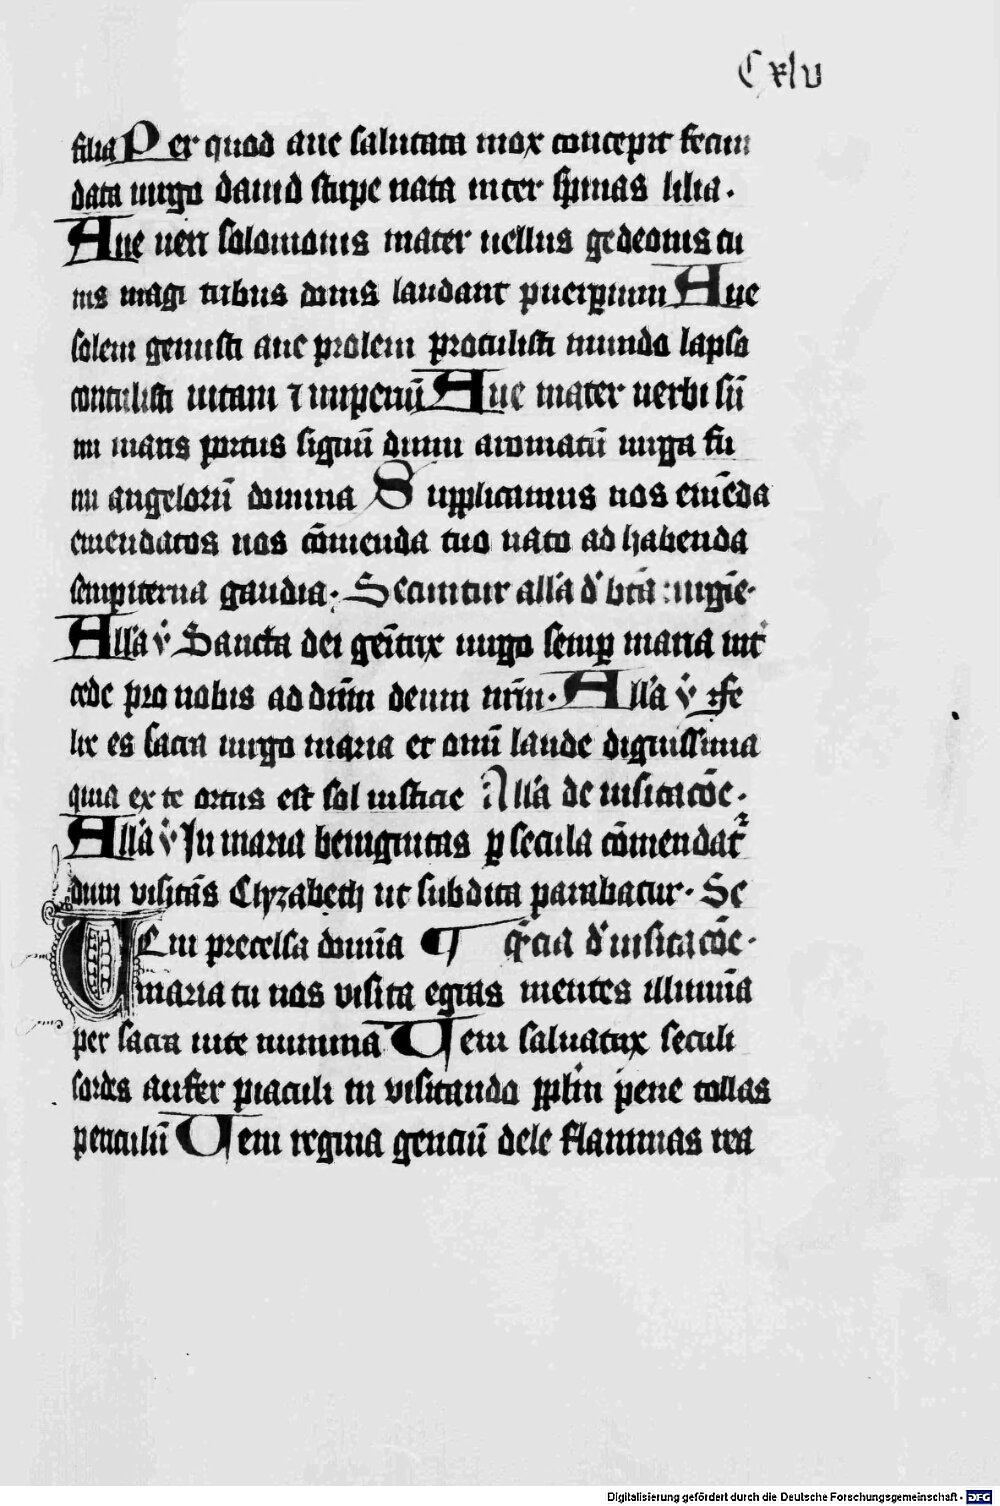 Cxlv
filia Per quod aue salutata mox concepit fecun
data uirgo dauid stirpe nata inter spinas lilia.
Aue ueri solomonis mater uellus gedeonis cu
ius magi tribus donis laudant puerperium Aue
solem genuisti aue prolem protulisti mundo lapso
contulisti uitam ⁊ imperiū Aue mater uerbi sū
mi maris portus signū dumi aromatū uirga fu
mi angelorū domina Supplicamus nos emēda
emendatos nos cōmenda tuo nato ad habenda
sempiterna gaudia. Secuntur all'a d' btā uirgīe.
All'a v̄ Sancta dei geītrix uirgo semp maria int
cede pro nobis ad dn̄m deum nr̄m. All'a v̄ Fe
lix es sacra uirgo maria et om̄i laude dignissima
quia ex te ortus est sol iusticie All'a de uisitacōe.
All'a v̄ In maria benignitas p secula cōmendat
dum visitās Elyzabeth ut subdita parabatur. Se
Ueni precelsa domīa q̄ncia d' uisitacōe.
maria tu nos visita egras mentes illumīa
per sacra uite munima Ueni saluatrix seculi
sordes aufer piaculi in visitando pplm̄ pene tollas
periculū Ueni regina genciū dele flammas rea
Digitalisierung gefördert durch die Deutsche Forschungsgemeinschaft - DFG